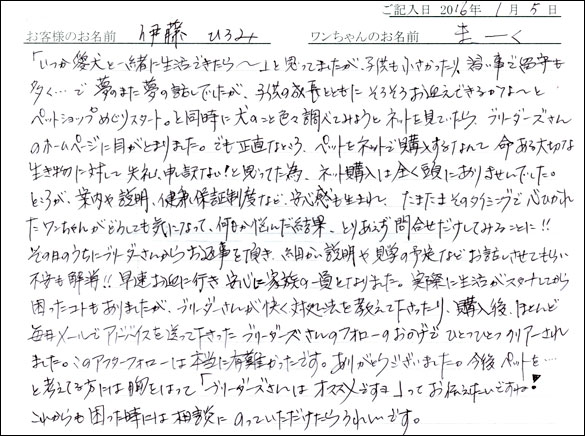 ご記入日 2016年 1月 5日
お客様のお名前 伊藤 ひろみ ワンちゃんのお名前 まーく
「いつか愛犬と一緒に生活できたら～」と思ってましたが、子供も小さかったり、習い事で留守も
多く…で 夢のまた夢の話しでしたが、子供の成長とともに そろそろお迎えできるかな～と
ペットショップめぐりスタート。と同時に犬のこと色々調べてみようと ネットを見ていたら、ブリーダーズさん
のホームページに目がとまりました。でも正直なところ、ペットをネットで購入するなんて 命ある大切な
生き物に対して 失礼、申し訳ない!と思ってた為、ネット購入は全く頭にありませんでした。
ところが、案内や説明、健康保証制度など、安心感も生まれ、たまたまそのタイミングで心ひかれ
たワンちゃんがどうしても気になって、何日か悩んだ結果、とりあえず問合せだけしてみることに!!
その日のうちにブリーダーさんからお返事を頂き、細かい説明や見学の予定などお話しさせてもらい
不安も解消!!早速お迎に行き 安心に家族の一員となりました。実際に生活がスタートしてから
困ったコトもありましたが、ブリーダーさんが快く対処法を教えて下さったり、購入後、ほとんど
毎日メールでアドバイスを送って下さった ブリーダーズさんのフォローのおかげで ひとつひとつクリアーされ
ました。このアフターフォローは本当に有難かったです。ありがとうございました。今後 ペットを…
と考えてる方には胸をはって「ブリーダーズさんは オススメですョ」ってお伝えしたいですね!
これからも困った時には相談に のっていただけたらうれしいです。